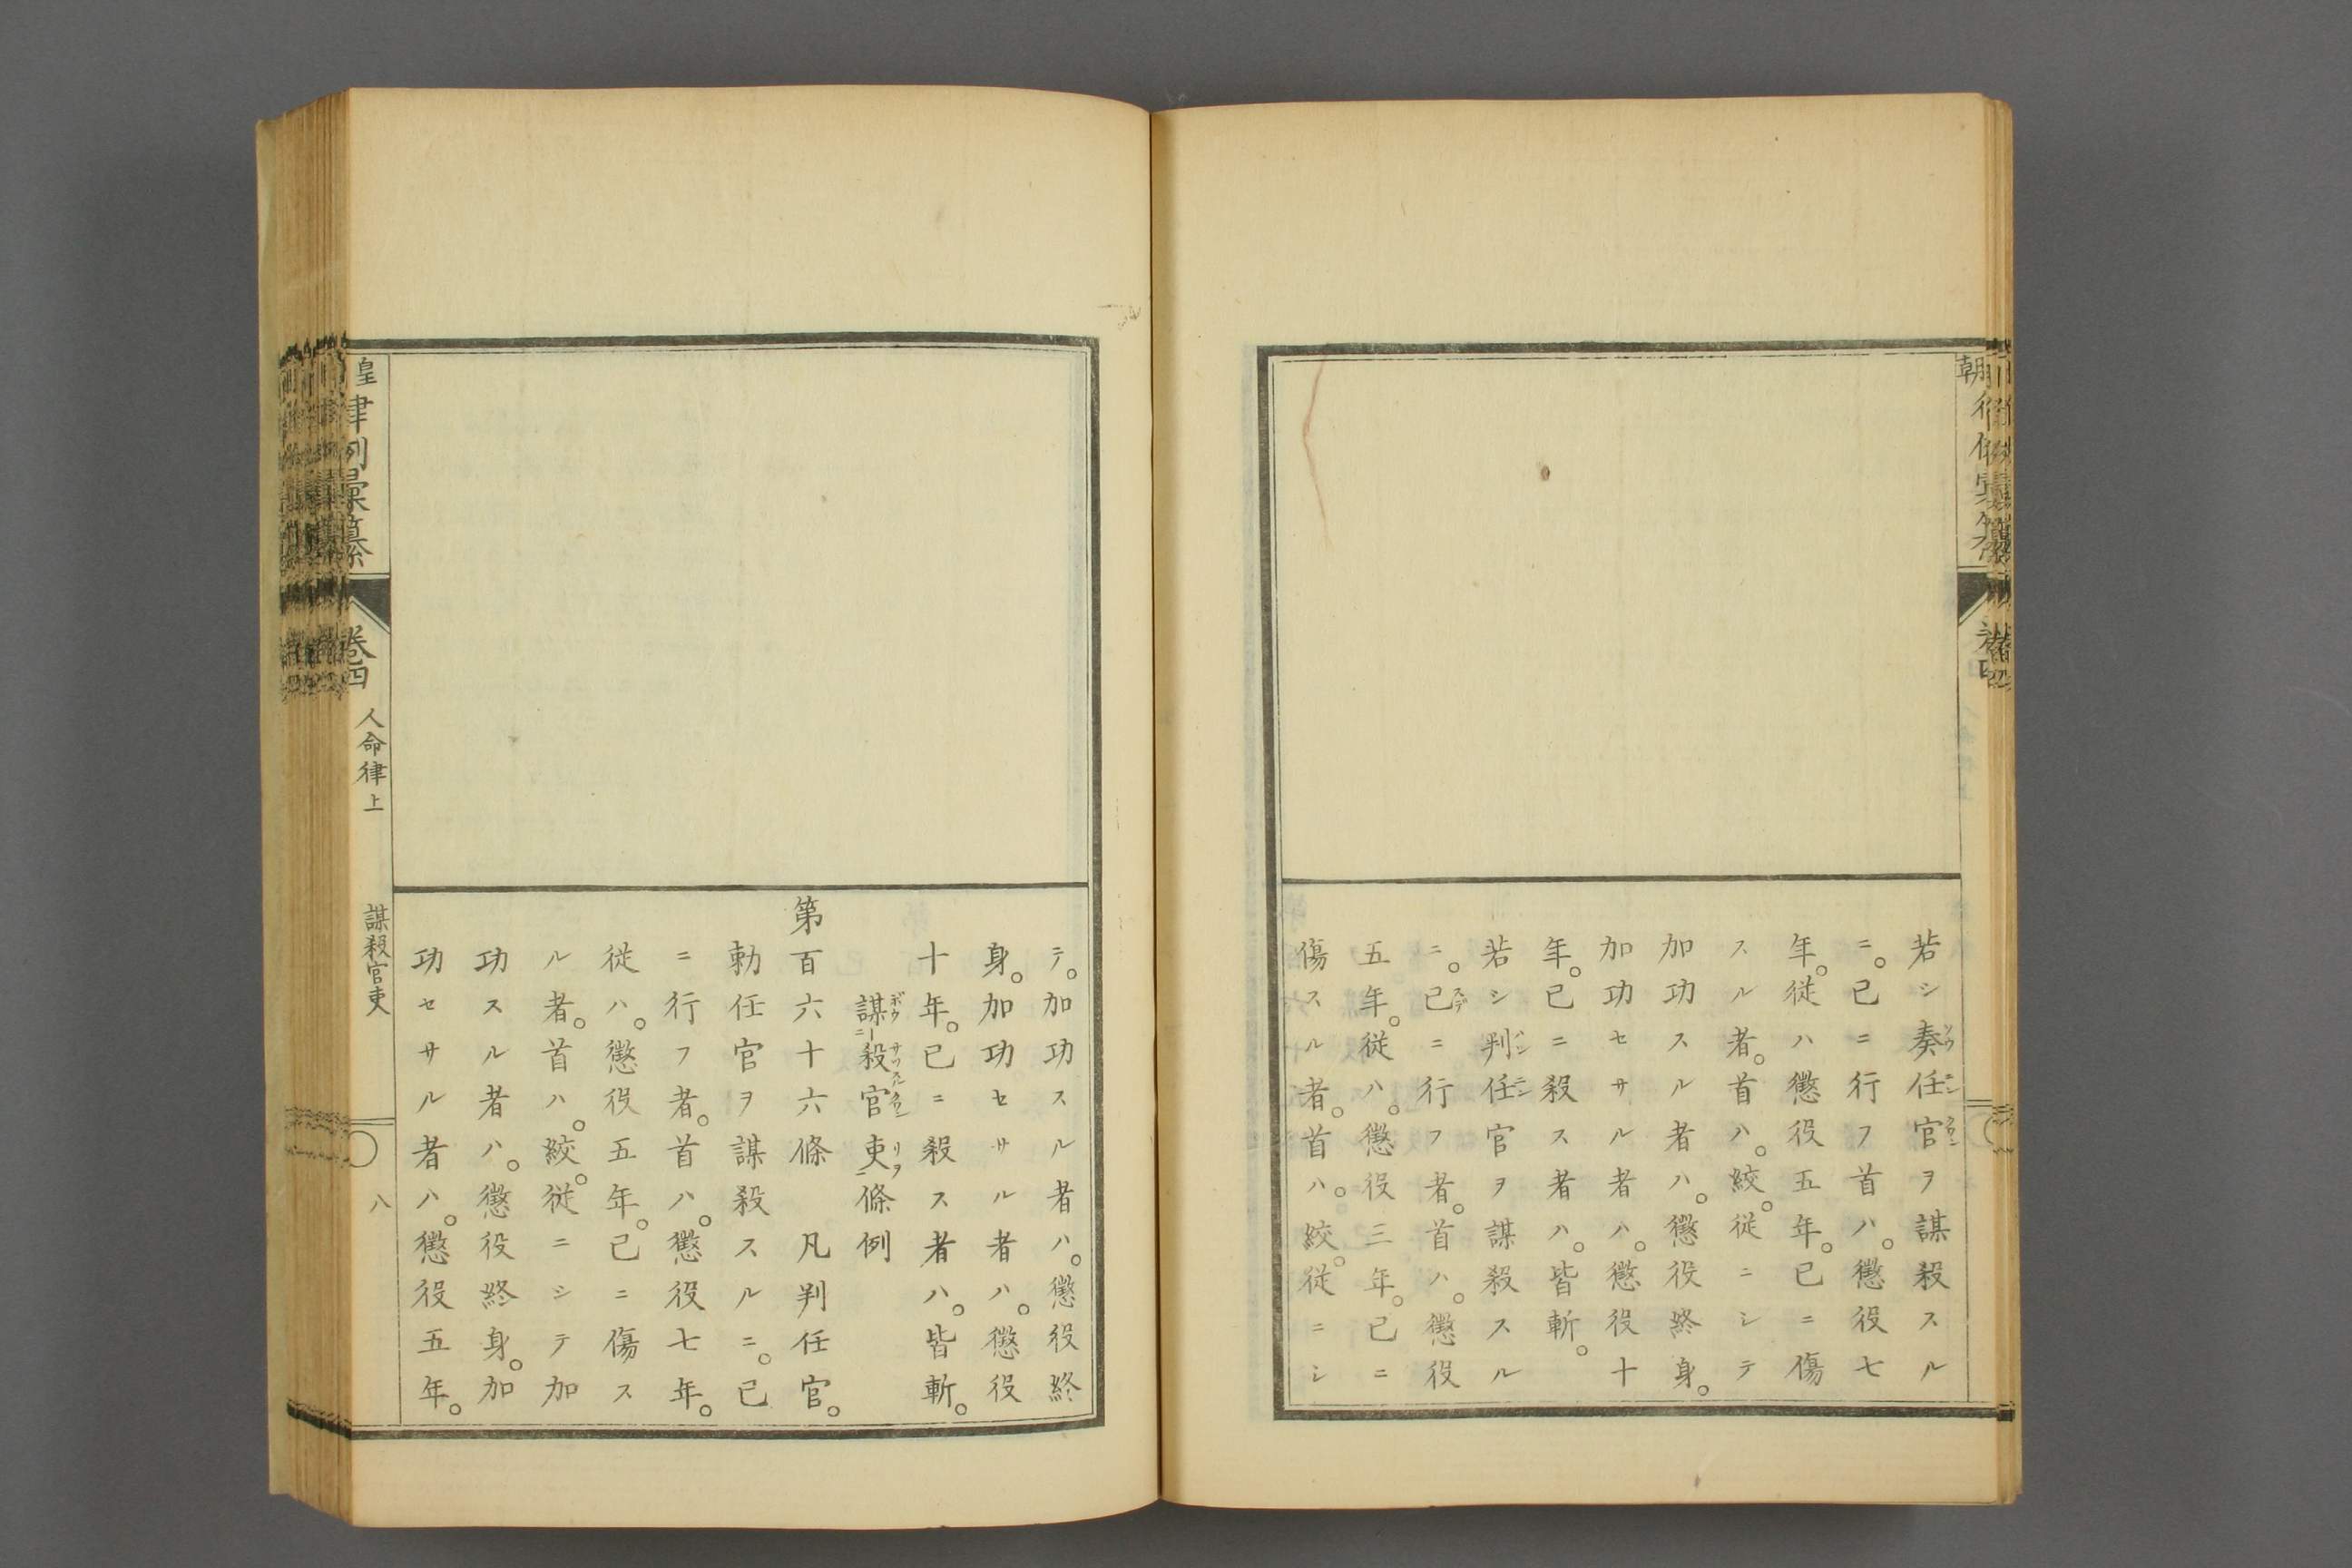 若シ奏任官ヲ謀殺スル
ニ。已ニ行フ首ハ。懲役七
年。従ハ懲役五年。已ニ傷
スル者。首ハ。絞。従ニシテ
加功スル者ハ。懲役終身。
加功セサル者ハ。懲役十
年。已ニ殺ス者ハ。皆斬。
若シ判任官ヲ謀殺スル
ニ。已ニ行フ者。首ハ。懲役
五年。従ハ。懲役三年。已ニ
傷スル者。首ハ。絞。従ニシ
テ。加功スル者ハ。懲役終
身。加功セサル者ハ。懲役
十年。已ニ殺ス者ハ。皆斬。
謀殺官吏條例
第百六十六條 凡判任官。
勅任官ヲ謀殺スルニ。已
ニ行フ者。首ハ。懲役七年。
従ハ。懲役五年。已ニ傷ス
ル者。首ハ。絞。従ニシテ加
功スル者ハ。懲役終身。加
功セサル者ハ。懲役五年。
皇律例彙纂 卷四 人命律上 謀殺官吏 八